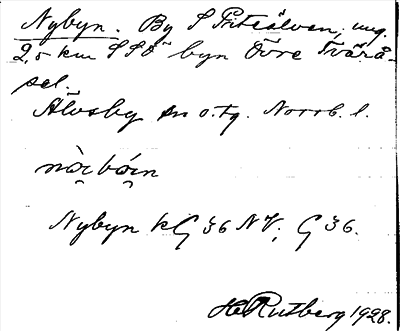 Nybyn. By S Piteälven, ung.
2,5 km SSO byn Övre Tvärå-
sel.
Älvsby sn o. tg. Norrb. l.
Nybyn kG 36 NV, G 36.
H Rutberg 1928.